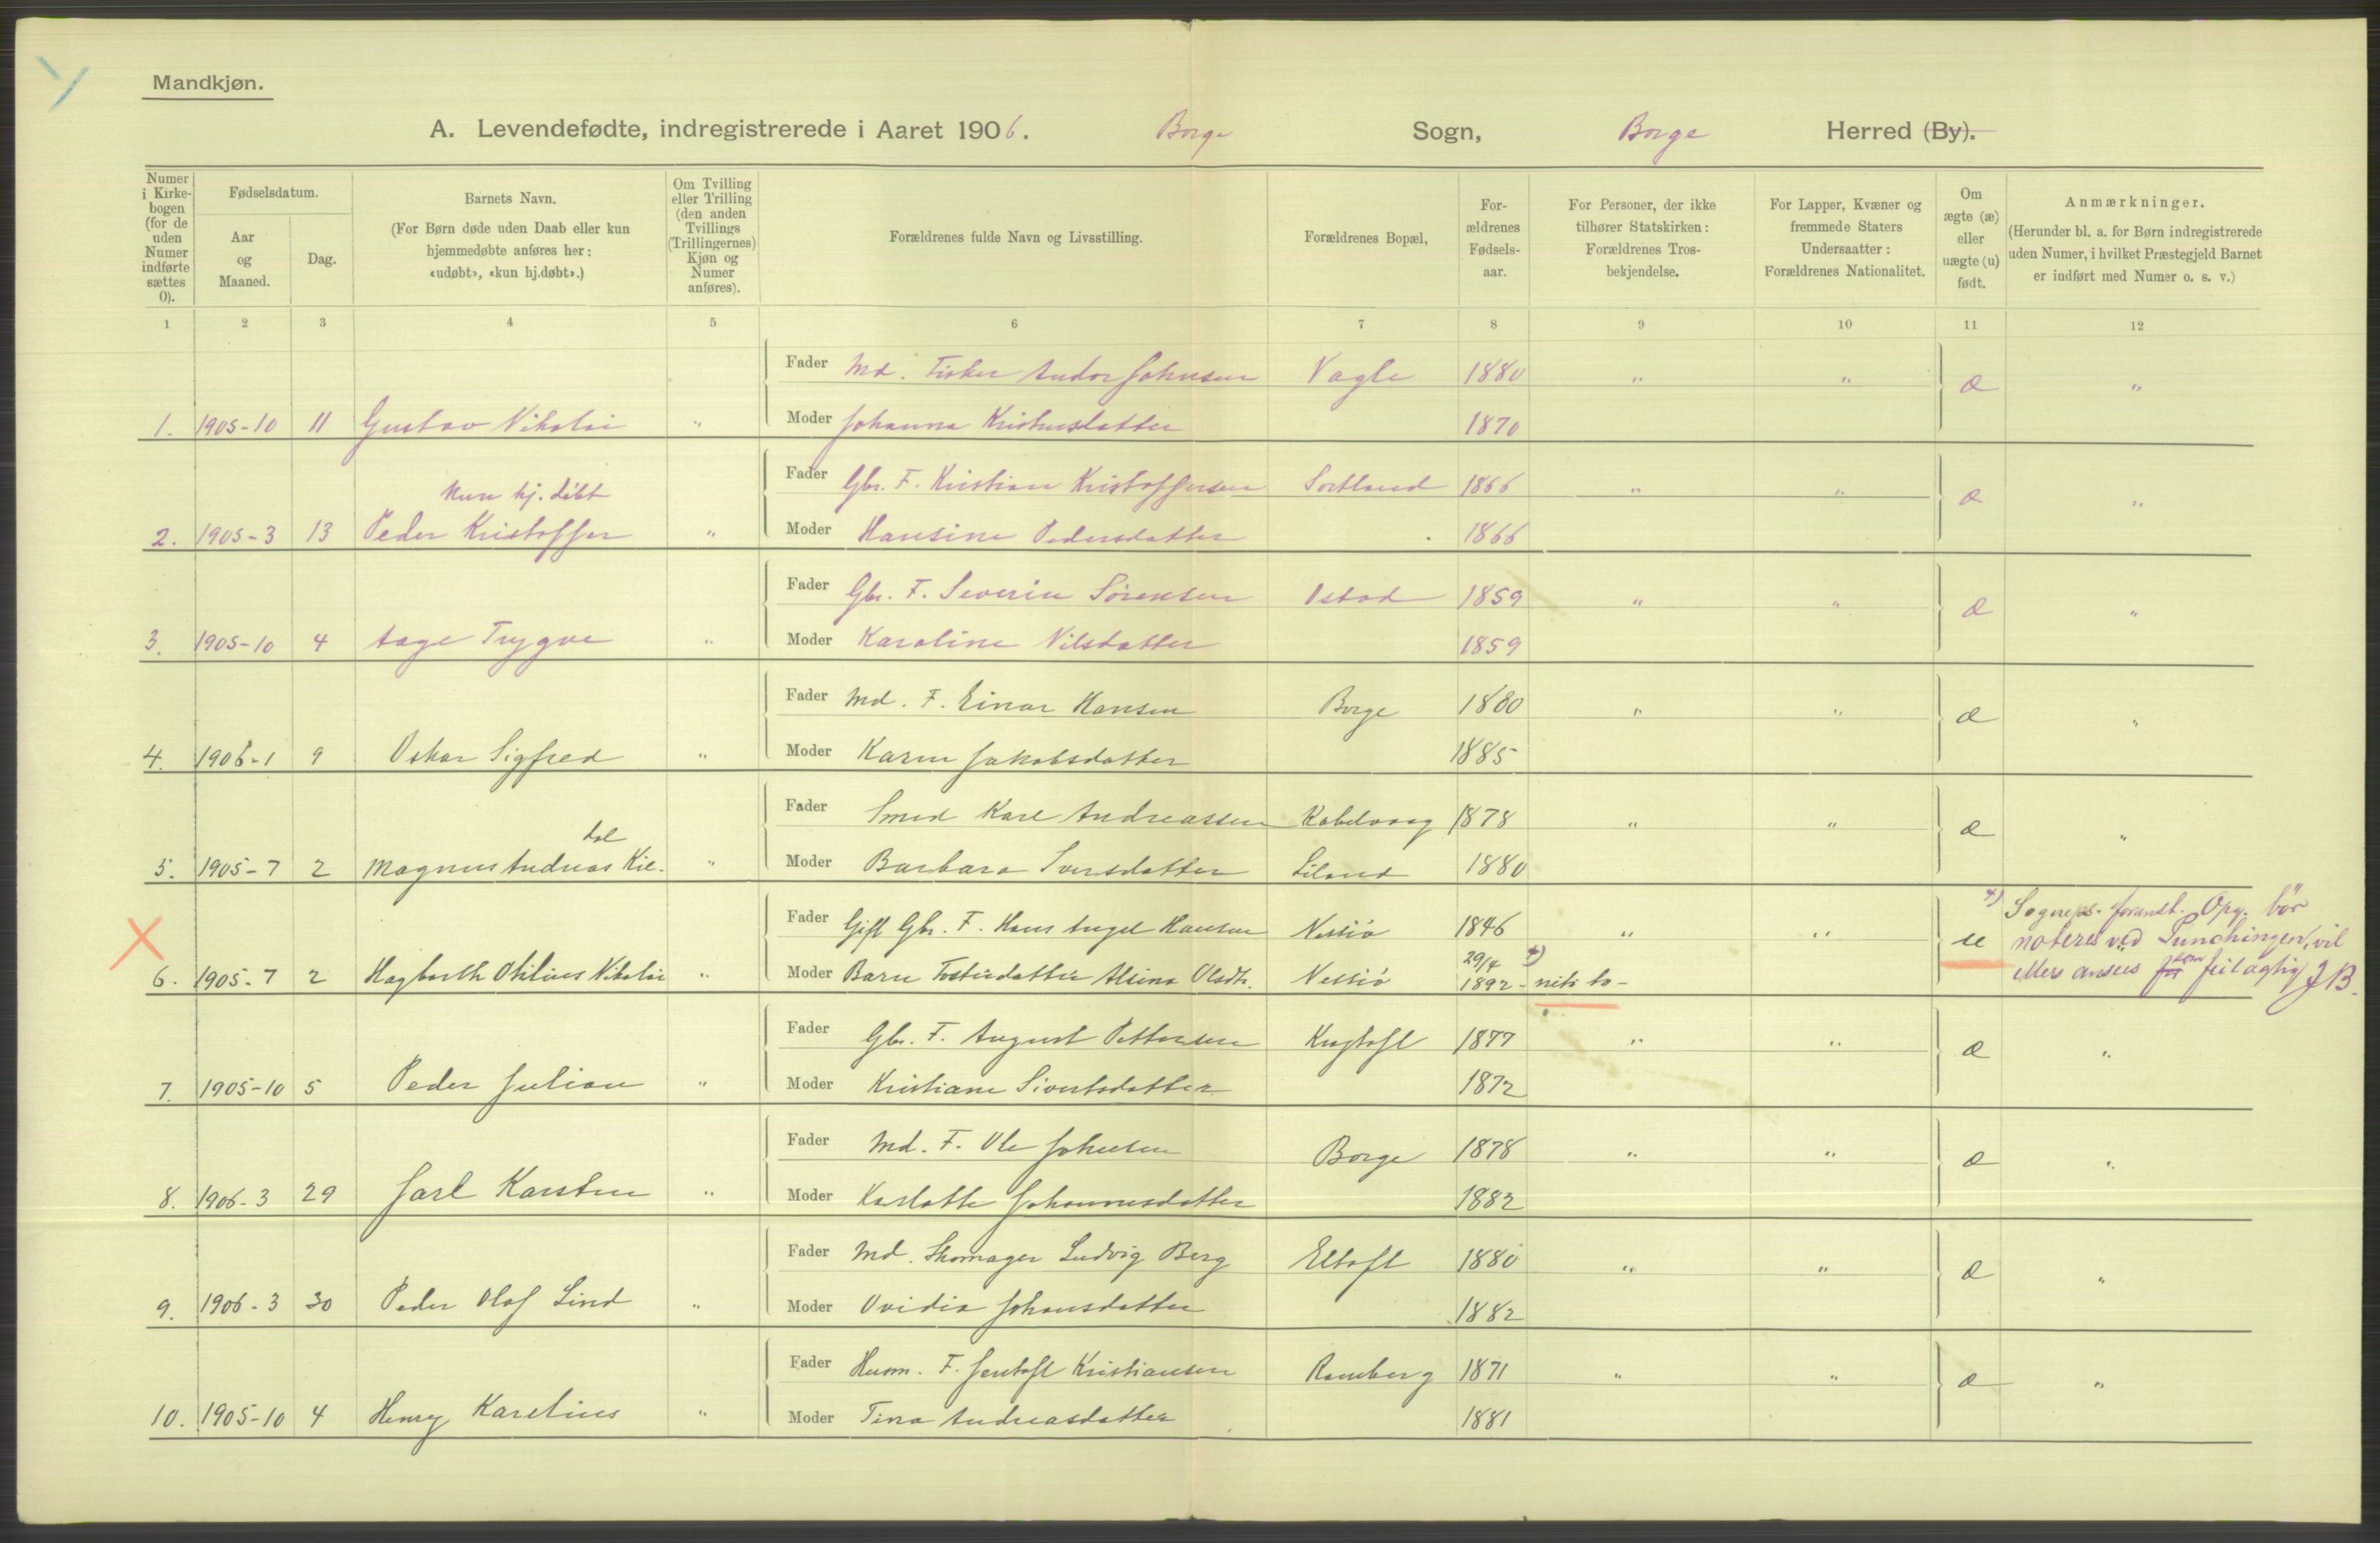 Mandkjøn.
A. Levendefødte, indregistrerede i Aaret 1906. Borge Sogn, Borge Herred (By).
Numer i Kirkebogen (for de uden Numer indførte sættes 0).
Fødselsdatum.
Aar og Maaned.
Dag.
Barnets Navn.
(For Børn døde uden Daab eller kun hjemmedøbte anføres her: «udøbt», «kun hj.døbt».)
Om Tvilling eller Trilling (den anden Tvillings (Trillingernes) Kjøn og Numer anføres).
Forældrenes fulde Navn og Livsstilling.
Forældrenes Bopæl,
Forældrenes Fødselsaar.
For Personer, der ikke tilhører Statskirken: Forældrenes Trosbekjendelse.
For Lapper, Kvæner og fremmede Staters Undersaatter: Forældrenes Nationalitet.
Om ægte (æ) eller uægte (u) født.
Anmærkninger.
(Herunder bl. a. for Børn indregistrerede uden Numer, i hvilket Præstegjeld Barnet er indført med Numer o. s. v.)
1 2 3 4 5 6 7 8 9 10 11 12
Fader Md. Fisker Andor Johnsen Vagle 1880 " " æ "
1. 1905-10 11 Gustav Nikolai " Moder Johanna 1870
Fader Gbr. F. Kristian Kristoffersen Sortland 1866 " " æ "
kun hj. døbt
2. 1905-3 13 Peder Kristoffer " Moder Hansine Pedersdatter 1866
Fader Gbr. F. Severin Sørensen Istad 1859 " " æ "
3. 1905-10 4 Aage Trygve " Moder Karoline Nilsdatter 1859
Fader Md. F. Einar Hansen Borge 1880 " " æ "
4. 1906-1 9 Oskar Sigfred " Moder Karen Jakobsdatter 1885
Fader Smed Karl Andreassen Kabelvaag 1878 " " æ "
dal
5. 1905-7 2 Magnus Andreas Kil. " Moder Barbara Iversdatter Liland 1880
Fader Gift Gbr. F. Hans Angel Hansen Nessiø 1846 " " u
6. 1905-7 2 Hagbarth Otilius Nikolai " Moder Barn Fosterdatter Alvina Olsdtr. Nessiø 29/4 1892 - nitito -
x) Sogneps. foranst. Opg. bør
noteres ved Punchingen, vil
ellers ansees for som feilagtig JB.
Fader Gbr. F. August Pettersen 1877 " " æ "
7. 1905-10 5 Peder Julian " Moder Kristiane Sivertsdatter 1872
Fader Md. F. Ole Johnsen Borge 1878 " " æ "
8. 1906-3 29 Jarl Karsten " Moder Karlotte Johannesdatter 1882
Fader Md. Skomager Ludvig Berg Eltoft 1880 " " æ "
9. 1906-3 30 Peder Olaf Lind " Moder Ovidia Johansdatter 1882
Fader Husm. F. Jentoft Kristiansen Ramberg 1871 " " æ "
10. 1905-10 4 Henry Karelius " Moder Tina Andreasdatter 1881